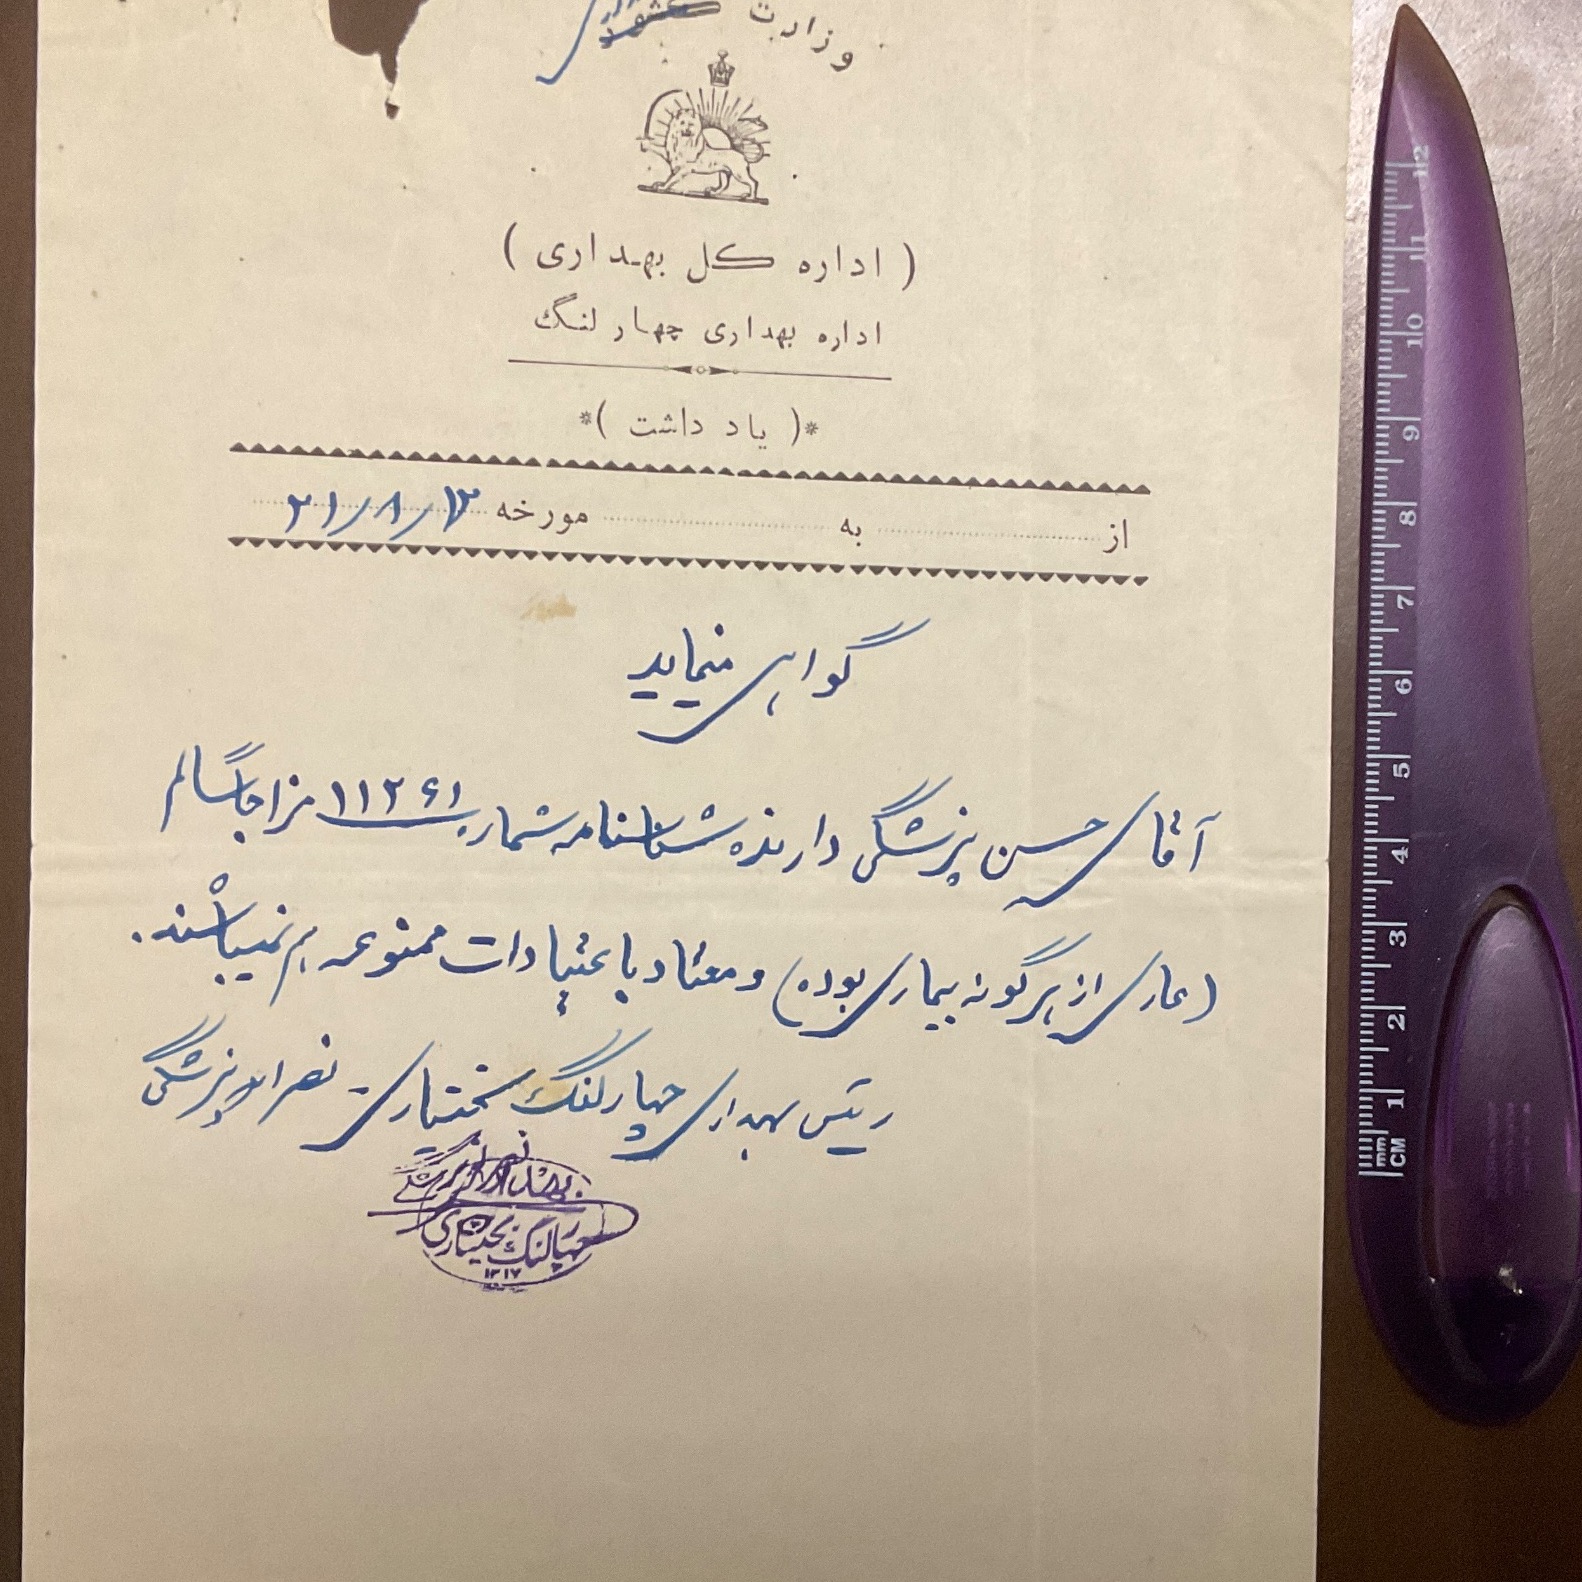 وزارت کشور
( اداره کل بهداری )
اداره بهداری چهار لنگ
*( یاد داشت )*
از به مورخه ۲۱/۸/۱۳
گواهی مینماید
آقای حسن پزشگی دارنده شناسنامه شماره ۱۱۲۶۱ مزاجاً سالم
(عاری از هرگونه بیماری بوده) و معتاد باعتیادات ممنوعه هم نمیباشند.
رئیس بهداری چهارلنگ بختیاری - نصراله پزشگی
چهارلنگ بختیاری
۱۳۱۷
12
11
10
9
8
7
6
5
4
3
2
1
mm
CM